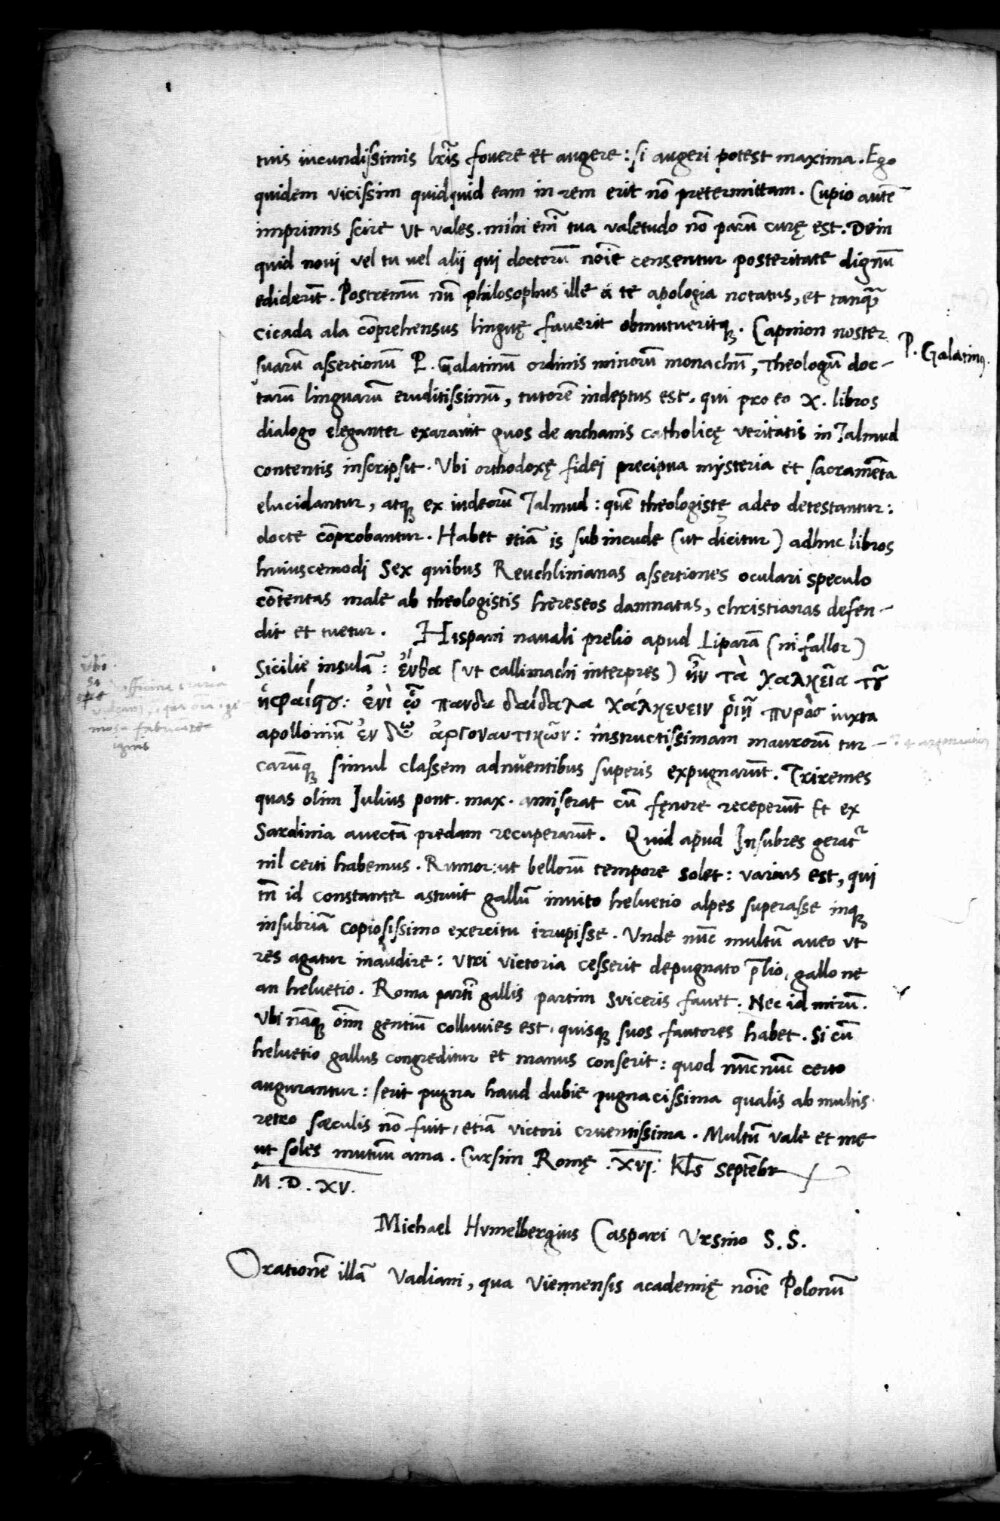 tuis iucundissimis lr̃is fovere et augere: si augeri potest maxima. Ego
quidem vicissim quidquid eam in rem erit nõ pretermittam. Cupio autẽ
imprimis scire ut vales. mihi em̃ tua valetudo nõ parũ curę est. Dein
quid novi vel tu vel alii qui doctorũ nõie censentur posteritate dignũ
ediderĩt. Postremũ nũ philosophus ille a te apologia notatus, et tanq̃
cicada ala cõprehensus linguę faverit obmutueritq;. Capnion noster
P. Galatinus.
suarũ assertionũ P. Galatinũ ordinis minorũ monachũ, Theologũ doc-
tarũ linguarũ eruditissimũ, tutorẽ indeptus est. qui pro eo X. libros
dialogo eleganter exaravit quos de archanis catholicę veritatis in Talmud
contentis inscripsit. Ubi orthodoxę fidei precipua mysteria et sacramẽta
elucidantur, atq; ex iudeorũ Talmud: quẽ theologistę adeo detestantur:
docte cõprobantur. Habet etiã is sub incude (ut dicitur) adhuc libros
huiuscemodi Sex quibus Reuchlinianas assertiones oculari speculo
cõtentas male ab theologistis hereseos damnatas, christianas defen-
dit et tuetur. Hispani navali prelio apud Liparã (ni fallor)
Sicilie insulã: ἔνθα (ut callimachi interpres) ἦν τὰ χαλκεῖα τοῦ
ἡφαίστου: ἐνὶ ᾧ πάντα δαίδαλα χάλκευεν ῥιπῇ πυρὸς iuxta
apolloniũ ἐν τῷ ἀργοναυτικῶν: instructissimam maurorũ tur-
carũq; simul classem adnuentibus superis expugnarũt. Triremes
quas olim Julius pont. max. amiserat cũ fęnore receperũt Et ex
Sardinia avectã predam recuperarũt. Quid apud Insubres geratr̃
nil certi habemus. Rumor: ut bellorũ tempore solet: varius est, qui
tñ id constanter astruit gallũ invito helvetio alpes superasse inq;
insubriã copiosissimo exercitu irrupisse. Unde nũc multũ aveo ut
res agatur inaudire: utri victoria cesserit depugnato p̃lio, gallo ne
an helvetio. Roma partĩ gallis partim Sviceris favet. Nec id mirũ.
Ubi nãq; oĩm gentiũ colluvies est, quisq; suos fautores habet. Si cũ
helvetio gallus congreditur et manus conserit: quod nũc nũc certo
augurantur: serit pugna haud dubie pugnacissima qualis ab multis
retro sæculis nõ fuit, etiã victori cruentissima. Multũ vale et me
ut soles mutuũ ama. Cursim Romę. XVI. Kl̃s Septẽbr
M.D.XV.
Michael Humelbergius Caspari Ursino S.S.
Orationẽ illã Vadiani, qua Viennensis academię nõie Polonũ